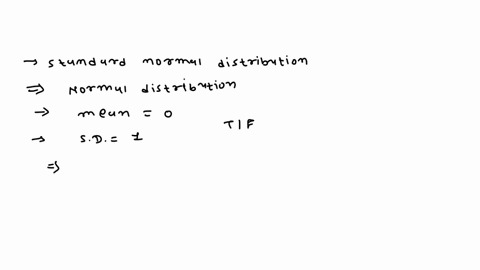 → standard normal distribution
⇒ Normal distribution
→ mean = 0
T/F
→ S.D. = 1
⇒